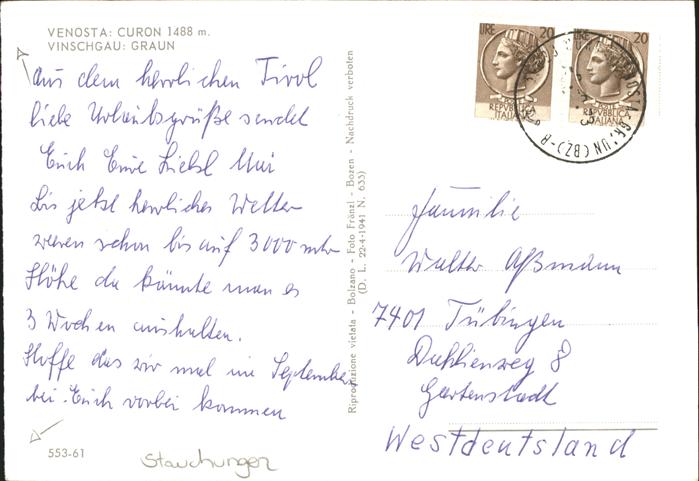 VENOSTA: CURON 1488 m.
VINSCHGAU: GRAUN
Aus dem herrlichen Tirol
liebe Urlaubsgrüße sendet
Euch Eure Liebsl Mui
Bis jetzt herrliches Wetter
waren schon bis auf 3000 mtr
Höhe da könnte man es
3 Wochen aushalten.
Hoffe das wir mal im September
bei Euch vorbei kommen
553-61
Stauchungen
Riproduzione vietata - Bolzano - Foto Fränzl - Bozen - Nachdruck verboten
(D. L. 22-4-1941 N. 633)
LIRE 20
REPVBBLICA
ITALIANA
20
POSTE
REPVBBLICA
ITALIANA
UN (BZ) - B
Familie
Walter Aßmann
7401 Tübingen
Dahlienweg 8
Gartenstadt
Westdeutsland